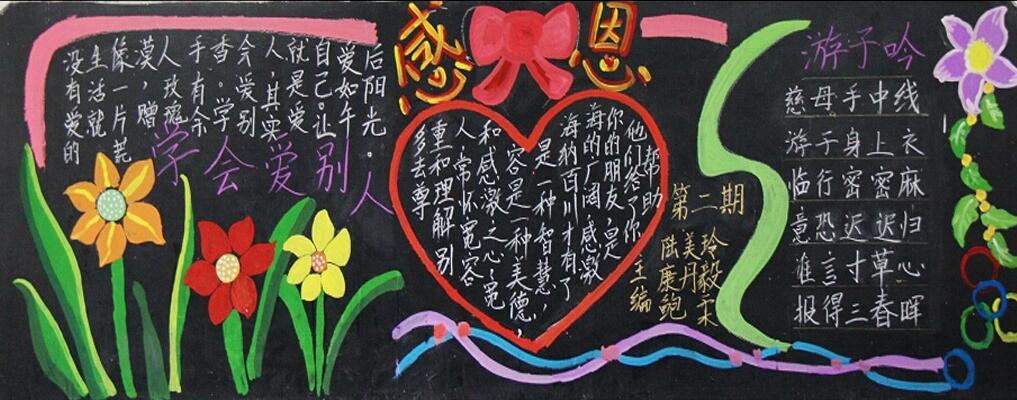 感恩
没有爱的
生活就
像一片荒
漠，赠
人玫瑰
手有余
香。学
会爱别
人，其实
就是爱
自己。让
爱如午
后阳光。
学会爱别人
多去尊
重和理解别
人，常怀宽容
和感激之心，宽
容是一种美德，
是一种智慧，
海纳百川才有了
海的广阔，感激
你的朋友，是
他们答了你
帮助
第二期
主编
陆美玲
康丹毅
鲍
游子吟
慈母手中线
游子身上衣
临行密密麻
意恐迟迟归
谁言寸草心
报得三春晖